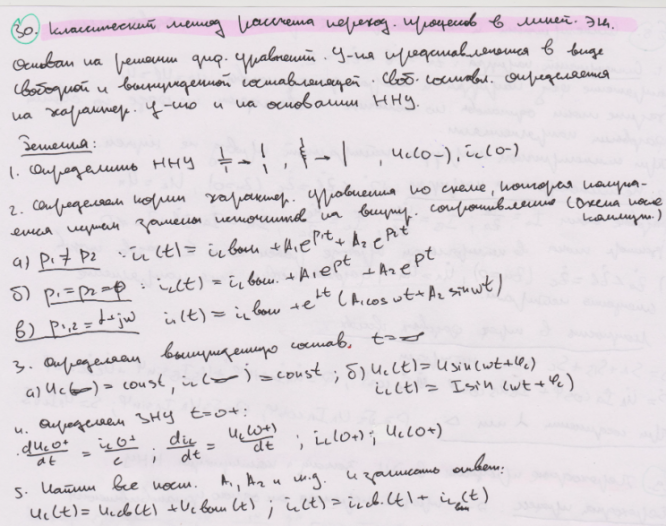 30. Классический метод рассчета переход. процесов в линей. эц.
Основан на решении диф. уравнений. У-ия представляется в виде
свободной и вынужденной составляющей. Своб. составл. определяется
на характер. у-нию и на основании ННУ.
Решения:
1. Определить ННУ , Uc(0-), iL(0-)
2. Определяем корни характер. уравнения по схеме, которая получа-
ется путем замены источников на внутр. сопротивление (схема после
коммут.)
а) p₁≠p₂ : iL(t) = iLвын + A₁e^{p₁t} + A₂e^{p₂t}
б) p₁=p₂=p : iL(t) = iLвын. + A₁e^{pt} + A₂e^{pt}
в) p₁,₂=α+jω iL(t) = iLвын + e^{αt} (A₁cosωt + A₂sinωt)
3. Определяем вынужденную состав. t=∞
а) Uc(∞) = const, iL(∞) = const ; б) Uc(t) = Usin(ωt+φc)
iL(t) = Isin(ωt+φc)
4. Определяем ЗНУ t=0+:
dUc0+/dt = ic0+/c ; diL/dt = UL(0+)/dt ; iL(0+) ; Uc(0+)
5. Найти все пост. A₁, A₂ и т.д. и записать ответ.
Uc(t) = Ucсв(t) + Ucвын(t) ; iL(t) = iLсв.(t) + iLвын(t)